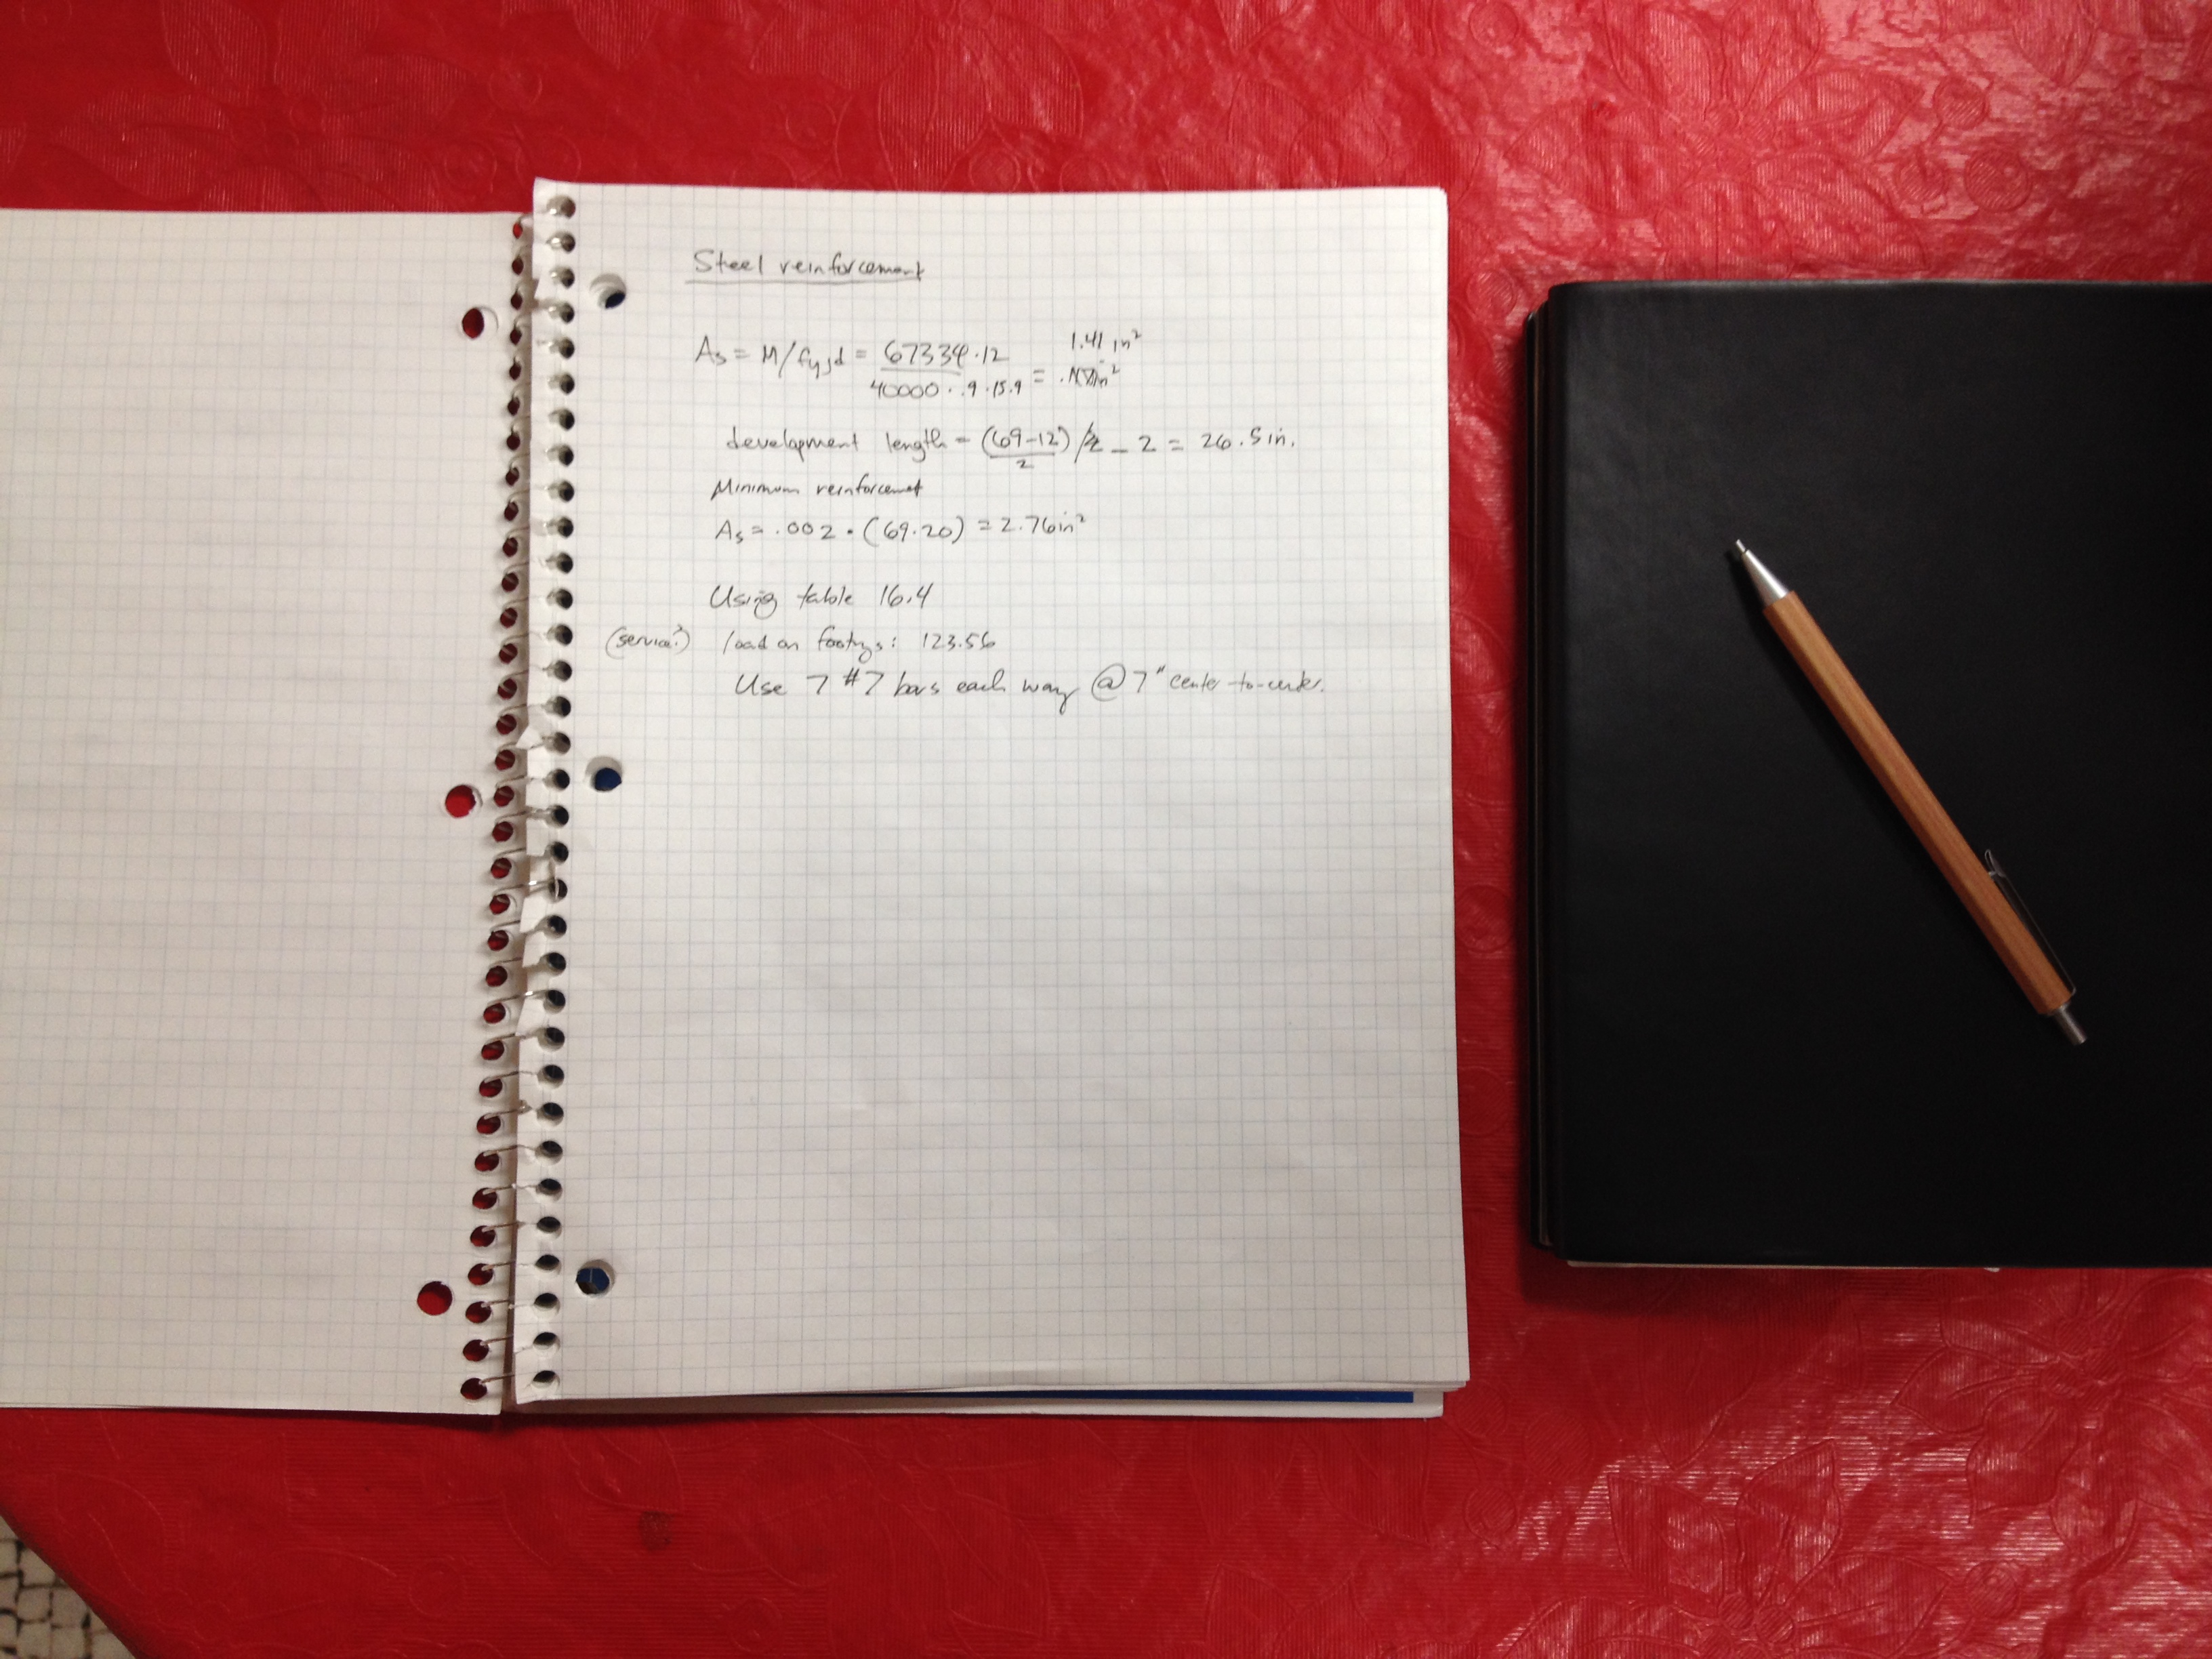 Steel reinforcement
As = M/fyjd = 67334.12 1.41 in²
40000 . .9 . 15.9 = in²
development length = (69-12)/2 - 2 = 26.5 in.
2
Minimum reinforcement
As = .002 • (69.20) = 2.76in²
Using table 16.4
(service?) load on footings: 123.56
Use 7 #7 bars each way @ 7" center-to-center.